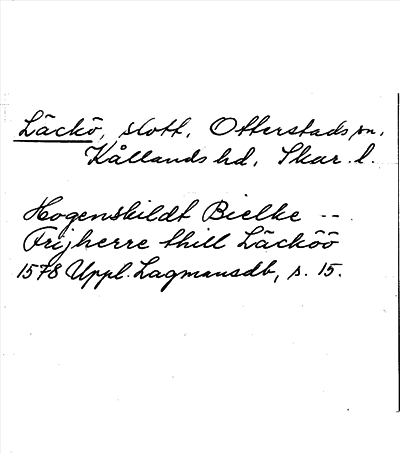 Läckö, slott, Otterstads sn,
Kållands hd, Skar. l.
Hogenskildt Bielke --
Frijherre thill Läcköö
1578 Uppl. Lagmansdb, s. 15.